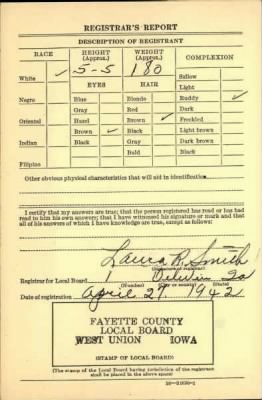 REGISTRAR'S REPORT
DESCRIPTION OF REGISTRANT
RACE HEIGHT (Approx.) WEIGHT (Approx.) COMPLEXION
White ✓ 5-5 180 Sallow
EYES HAIR Light
Negro Blue Blonde Ruddy ✓
Gray Red Dark
Oriental Hazel Brown ✓ Freckled
Brown ✓ Black Light brown
Indian Black Gray Dark brown
Bald Black
Filipino
Other obvious physical characteristics that will aid in identification
I certify that my answers are true; that the person registered has read or has had
read to him his own answers; that I have witnessed his signature or mark and that
all of his answers of which I have knowledge are true, except as follows:
Laura R. Smith
(Signature of registrar)
Registrar for Local Board 1 Oelwein Ia
(Number) (City or county) (State)
Date of registration April 27 1942
FAYETTE COUNTY
LOCAL BOARD
WEST UNION IOWA
(STAMP OF LOCAL BOARD)
(The stamp of the Local Board having jurisdiction of the registrant
shall be placed in the above space)
16-21630-1